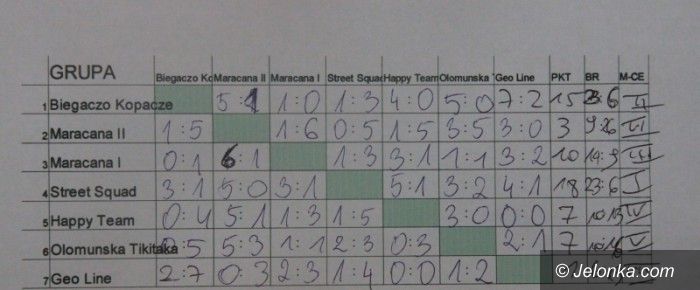 GRUPA Biegaczo Ko Maracana II Maracana I Street Squad Happy Team Olomunska T Geo Line PKT BR M-CE
1 Biegaczo Kopacze 5:1 1:0 1:3 4:0 5:0 7:2 15 23:6 II
2 Maracana II 1:5 1:6 0:5 1:5 3:5 3:0 3 9:26 VI
3 Maracana I 0:1 6:1 1:3 3:1 1:1 3:2 10 14:9 III
4 Street Squad 3:1 5:0 3:1 5:1 3:2 4:1 18 23:6 I
5 Happy Team 0:4 5:1 1:3 1:5 3:0 0:0 7 10:13 IV
6 Olomunska Tikitaka 0:5 5:3 1:1 2:3 0:3 2:1 7 V
7 Geo Line 2:7 0:3 2:3 1:4 0:0 1:2
© Jelonka.com